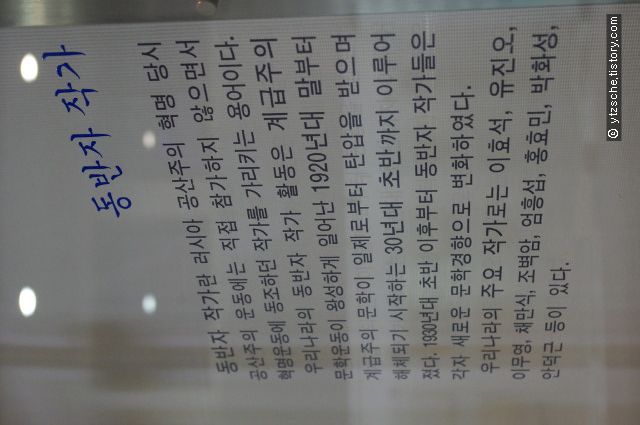 동반자 작가
동반자 작가란 러시아 공산주의 혁명 당시
공산주의 운동에는 직접 참가하지 않으면서
혁명운동에 동조하던 작가를 가리키는 용어이다.
우리나라의 동반자 작가 활동은 계급주의
문학운동이 왕성하게 일어난 1920년대 말부터
계급주의 문학이 일제로부터 탄압을 받으며
해체되기 시작하는 30년대 초반까지 이루어
졌다. 1930년대 초반 이후부터 동반자 작가들은
각자 새로운 문학경향으로 변화하였다.
우리나라의 주요 작가로는 이효석, 유진오,
이무영, 채만식, 조벽암, 엄흥섭, 홍효민, 박화성,
안덕근 등이 있다.
© ytzsche.tistory.com